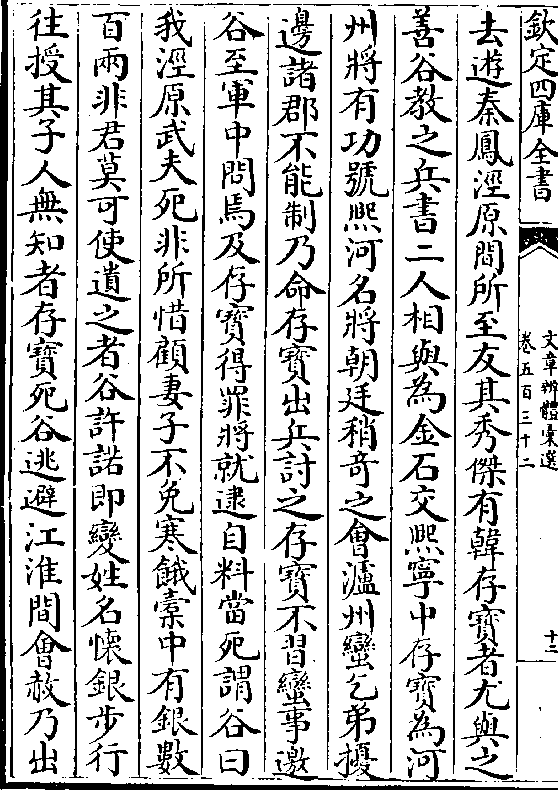 欽定四庫全書
文章辨體彙選
卷五百三十二
十二
去遊秦鳳涇原間所至友其秀傑有韓存寳者尤與之
善谷教之兵書二人相與為金石交熙寧中存寳為河
州將有功號熙河名將朝廷稍竒之會瀘州蠻乞弟擾
邊諸郡不能制乃命存寳出兵討之存寳不習蠻事邀
谷至軍中問焉及存寳得罪將就逮自料當死謂谷曰
我涇原武夫死非所惜顧妻子不免寒餓橐中有銀數
百兩非君莫可使遺之者谷許諾即變姓名懷銀步行
往授其子人無知者存寳死谷逃避江淮間會赦乃出